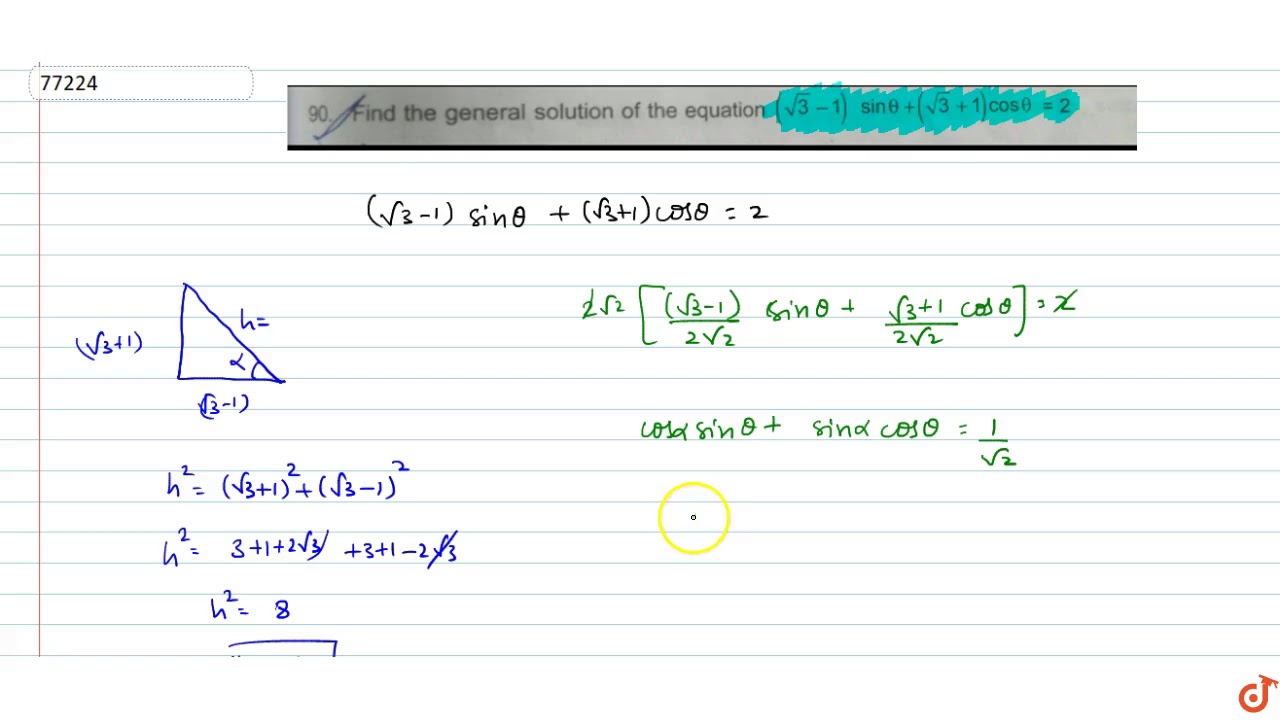 77224
90. Find the general solution of the equation (√3 − 1) sinθ + (√3 + 1)cosθ = 2
(√3-1) sinθ + (√3+1) cosθ = 2
2√2 [ (√3-1)/2√2 sinθ + √3+1/2√2 cosθ ] = 2
h=
(√3+1)
α
(√3-1)
cosα sinθ + sinα cosθ = 1/√2
h² = (√3+1)² + (√3-1)²
h² = 3+1+2√3 +3+1-2√3
h² = 8